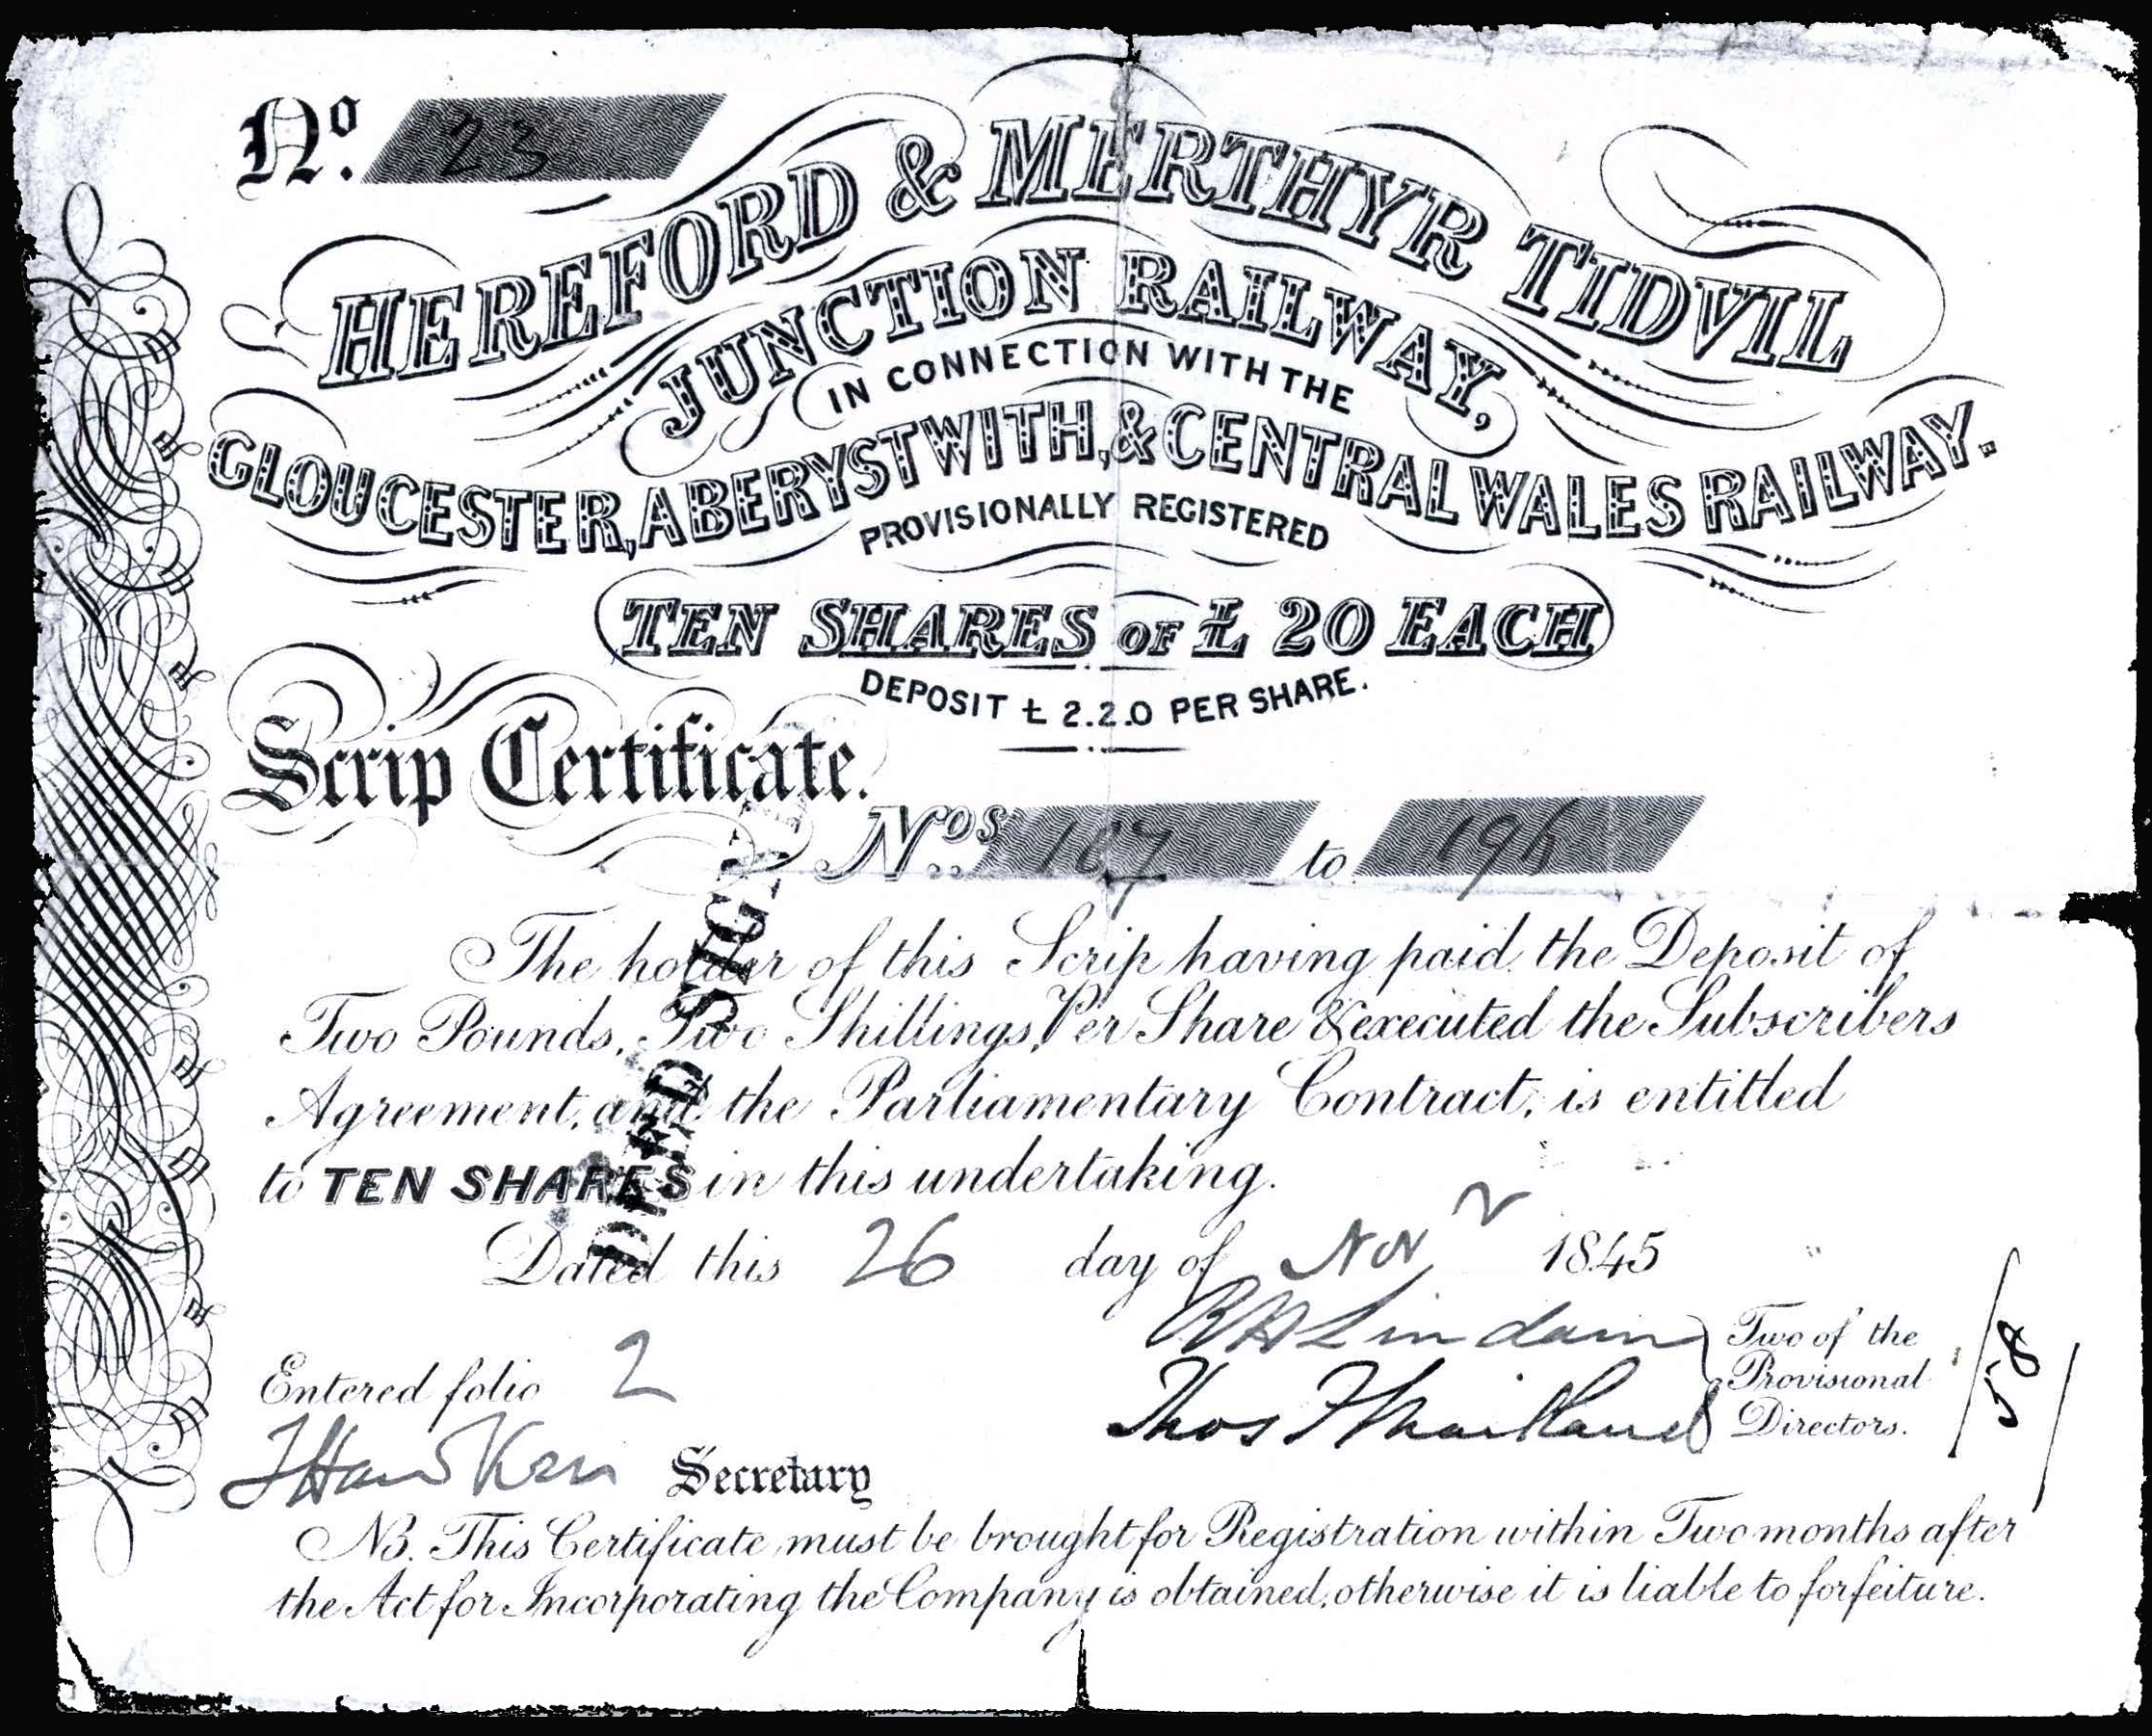 No. 23
HEREFORD & MERTHYR TIDVIL
JUNCTION RAILWAY,
IN CONNECTION WITH THE
GLOUCESTER, ABERYSTWITH, & CENTRAL WALES RAILWAY.
PROVISIONALLY REGISTERED
TEN SHARES OF £ 20 EACH
DEPOSIT £ 2.2.0 PER SHARE.
Scrip Certificate.
Nos. 187 to 196
The holder of this Scrip having paid the Deposit of
Two Pounds, Two Shillings, Per Share & executed the Subscribers
Agreement, and the Parliamentary Contract, is entitled
to TEN SHARES in this undertaking.
Dated this 26 day of Novr 1845
Two of the
Entered folio 2
Provisional
Thos Maitland
Directors.
Secretary
58
NB. This Certificate must be brought for Registration within Two months after
the Act for Incorporating the Company is obtained, otherwise it is liable to forfeiture.
DEED SIGN